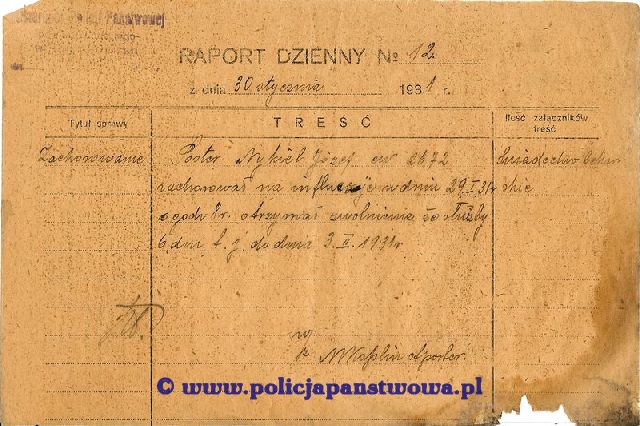 Państwowej
RAPORT DZIENNY № 12
z dnia 30 stycznia 1931 r.
Tytuł sprawy
TREŚĆ
Ilość załączników
treść
Zachorowanie
Poster. Nykiel Józef ew 2672
zachorował na influencję w dniu 29/I 31r
o godz 8r. otrzymał zwolnienie ze służby
6 dni t. j. do dnia 3. II. 1931r
Świadectwo lekar
skie
st poster.
© www.policjapanstwowa.pl